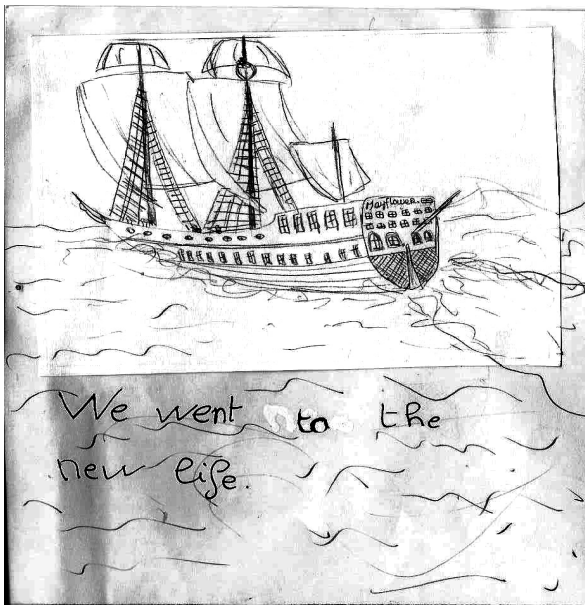 Mayflower
We went to the
new life.